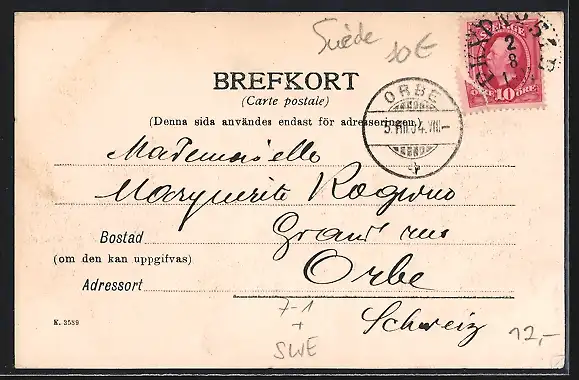 Suède
10€
SVERIGE
2
8
1
10
ÖRE ÖRE
BREFKORT
(Carte postale)
ORBE
5.VIII.04.VIII.-
(Denna sida användes endast för adresseringen.)
Mademoiselle
Marguerite
Bostad
Grand' rue
(om den kan uppgifvas)
Orbe
Adressort
7-1
+
SWE
Schweiz
12,-
K. 3589